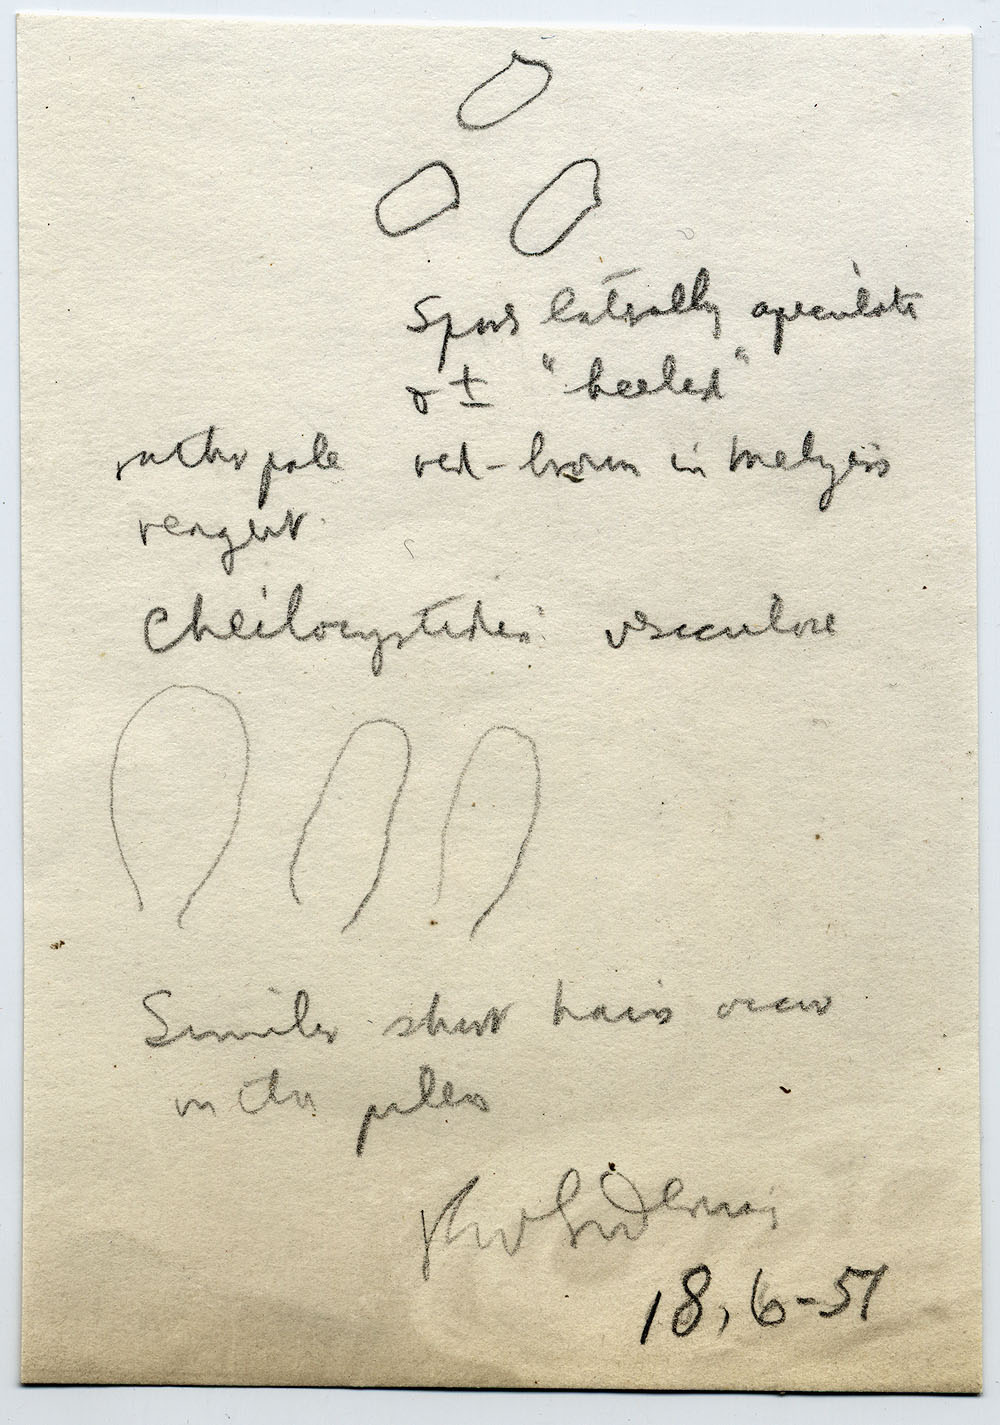 Spores laterally apiculate
& ± "heeled"
rather pale red-brown in Melzers
reagent.
Cheilocystidia: vesiculose
Similar short hairs occur
on the pileus
18, 6-51